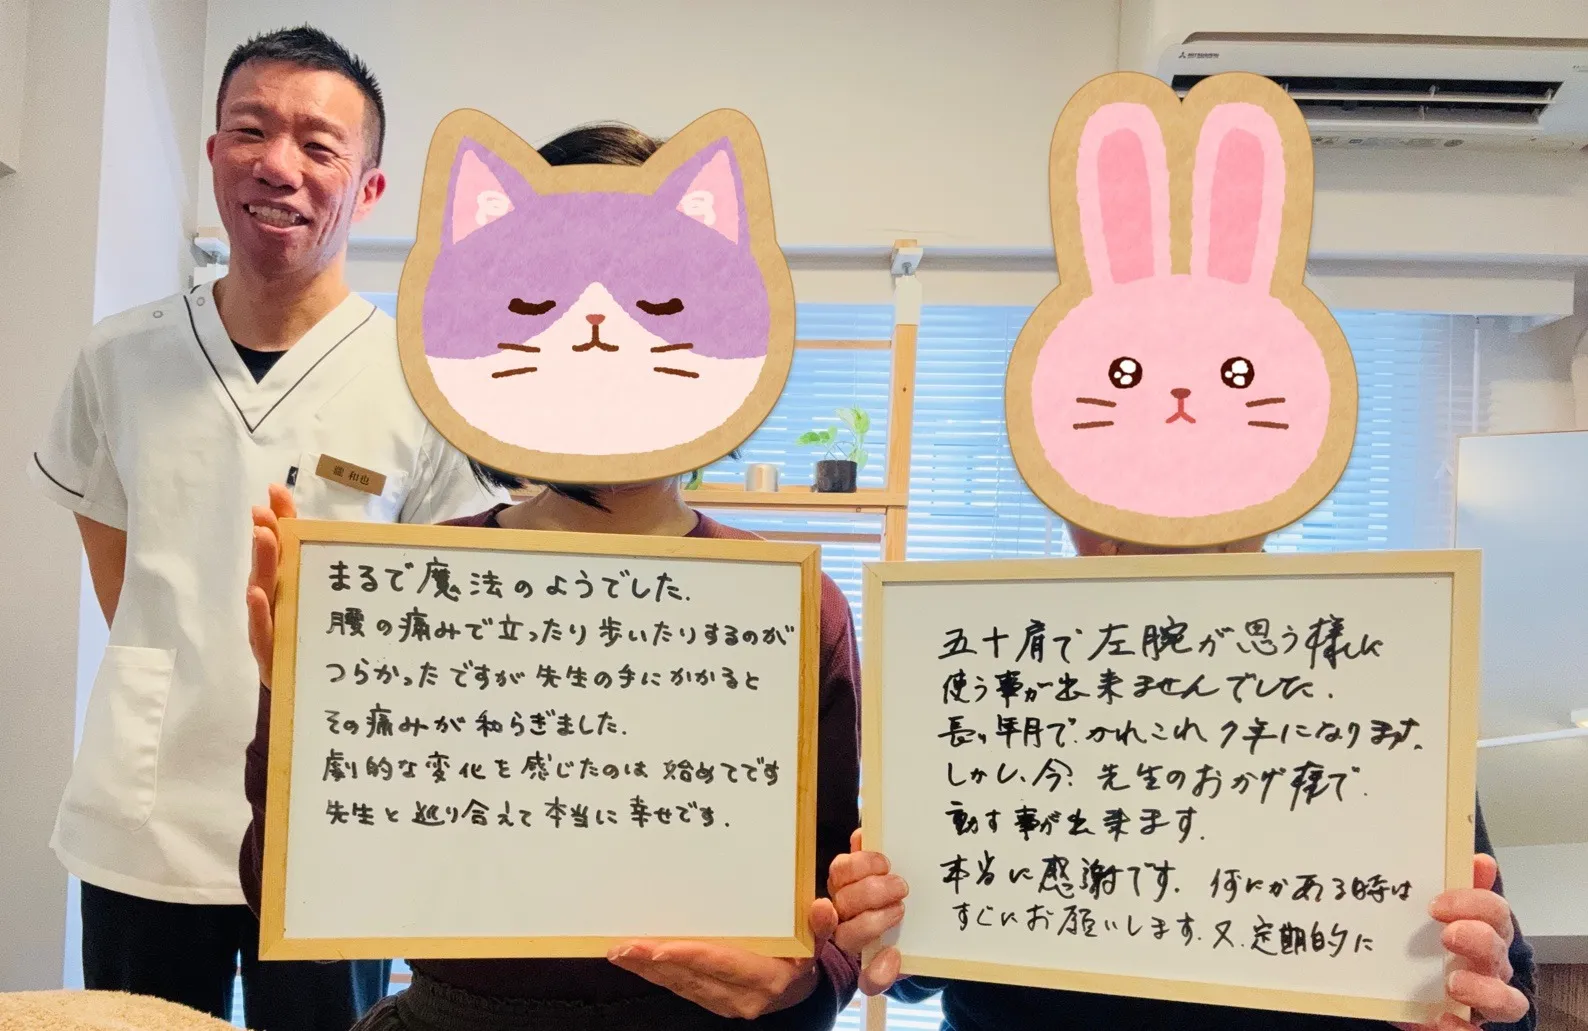 MITSUBISHI
和也
まるで魔法のようでした.
腰の痛みで立ったり歩いたりするのが
つらかったですが先生の手にかかると
その痛みが和らぎました.
劇的な変化を感じたのは始めてです
先生と巡り合えて本当に幸せです.
五十肩で左腕が思う様に
使う事が出来ませんでした.
長い年月で.かれこれ7年になります.
しかし、今?先生のおかげ様で.
動す事が出来ます.
本当に感謝です.何にかある時は
すぐにお願いします.又.定期的に